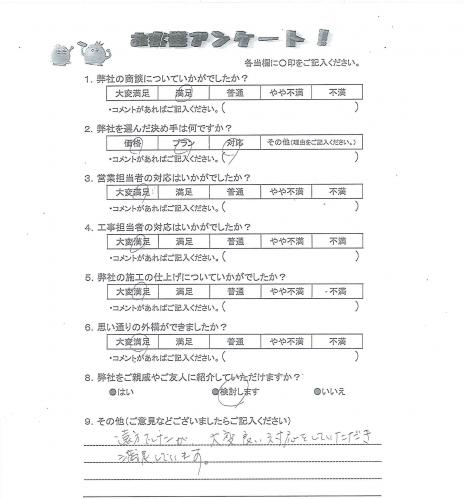 お客様アンケート！
各当欄に○印をご記入ください。
1. 弊社の商談についていかがでしたか？
大変満足 満足 普通 やや不満 不満
・コメントがあればご記入ください。（ ）
2. 弊社を選んだ決め手は何ですか？
価格 プラン 対応 その他（理由をご記入ください。）
・コメントがあればご記入ください。（ ）
3. 営業担当者の対応はいかがでしたか？
大変満足 満足 普通 やや不満 不満
・コメントがあればご記入ください。（ ）
4. 工事担当者の対応はいかがでしたか？
大変満足 満足 普通 やや不満 不満
・コメントがあればご記入ください。（ ）
5. 弊社の施工の仕上げについていかがでしたか？
大変満足 満足 普通 やや不満 不満
・コメントがあればご記入ください。（ ）
6. 思い通りの外構ができましたか？
大変満足 満足 普通 やや不満 不満
・コメントがあればご記入ください。（ ）
8. 弊社をご親戚やご友人に紹介していただけますか？
●はい ●検討します ●いいえ
9. その他（ご意見などございましたらご記入ください）
遠方でしたが 大変良い対応をしていただき
満足しています。